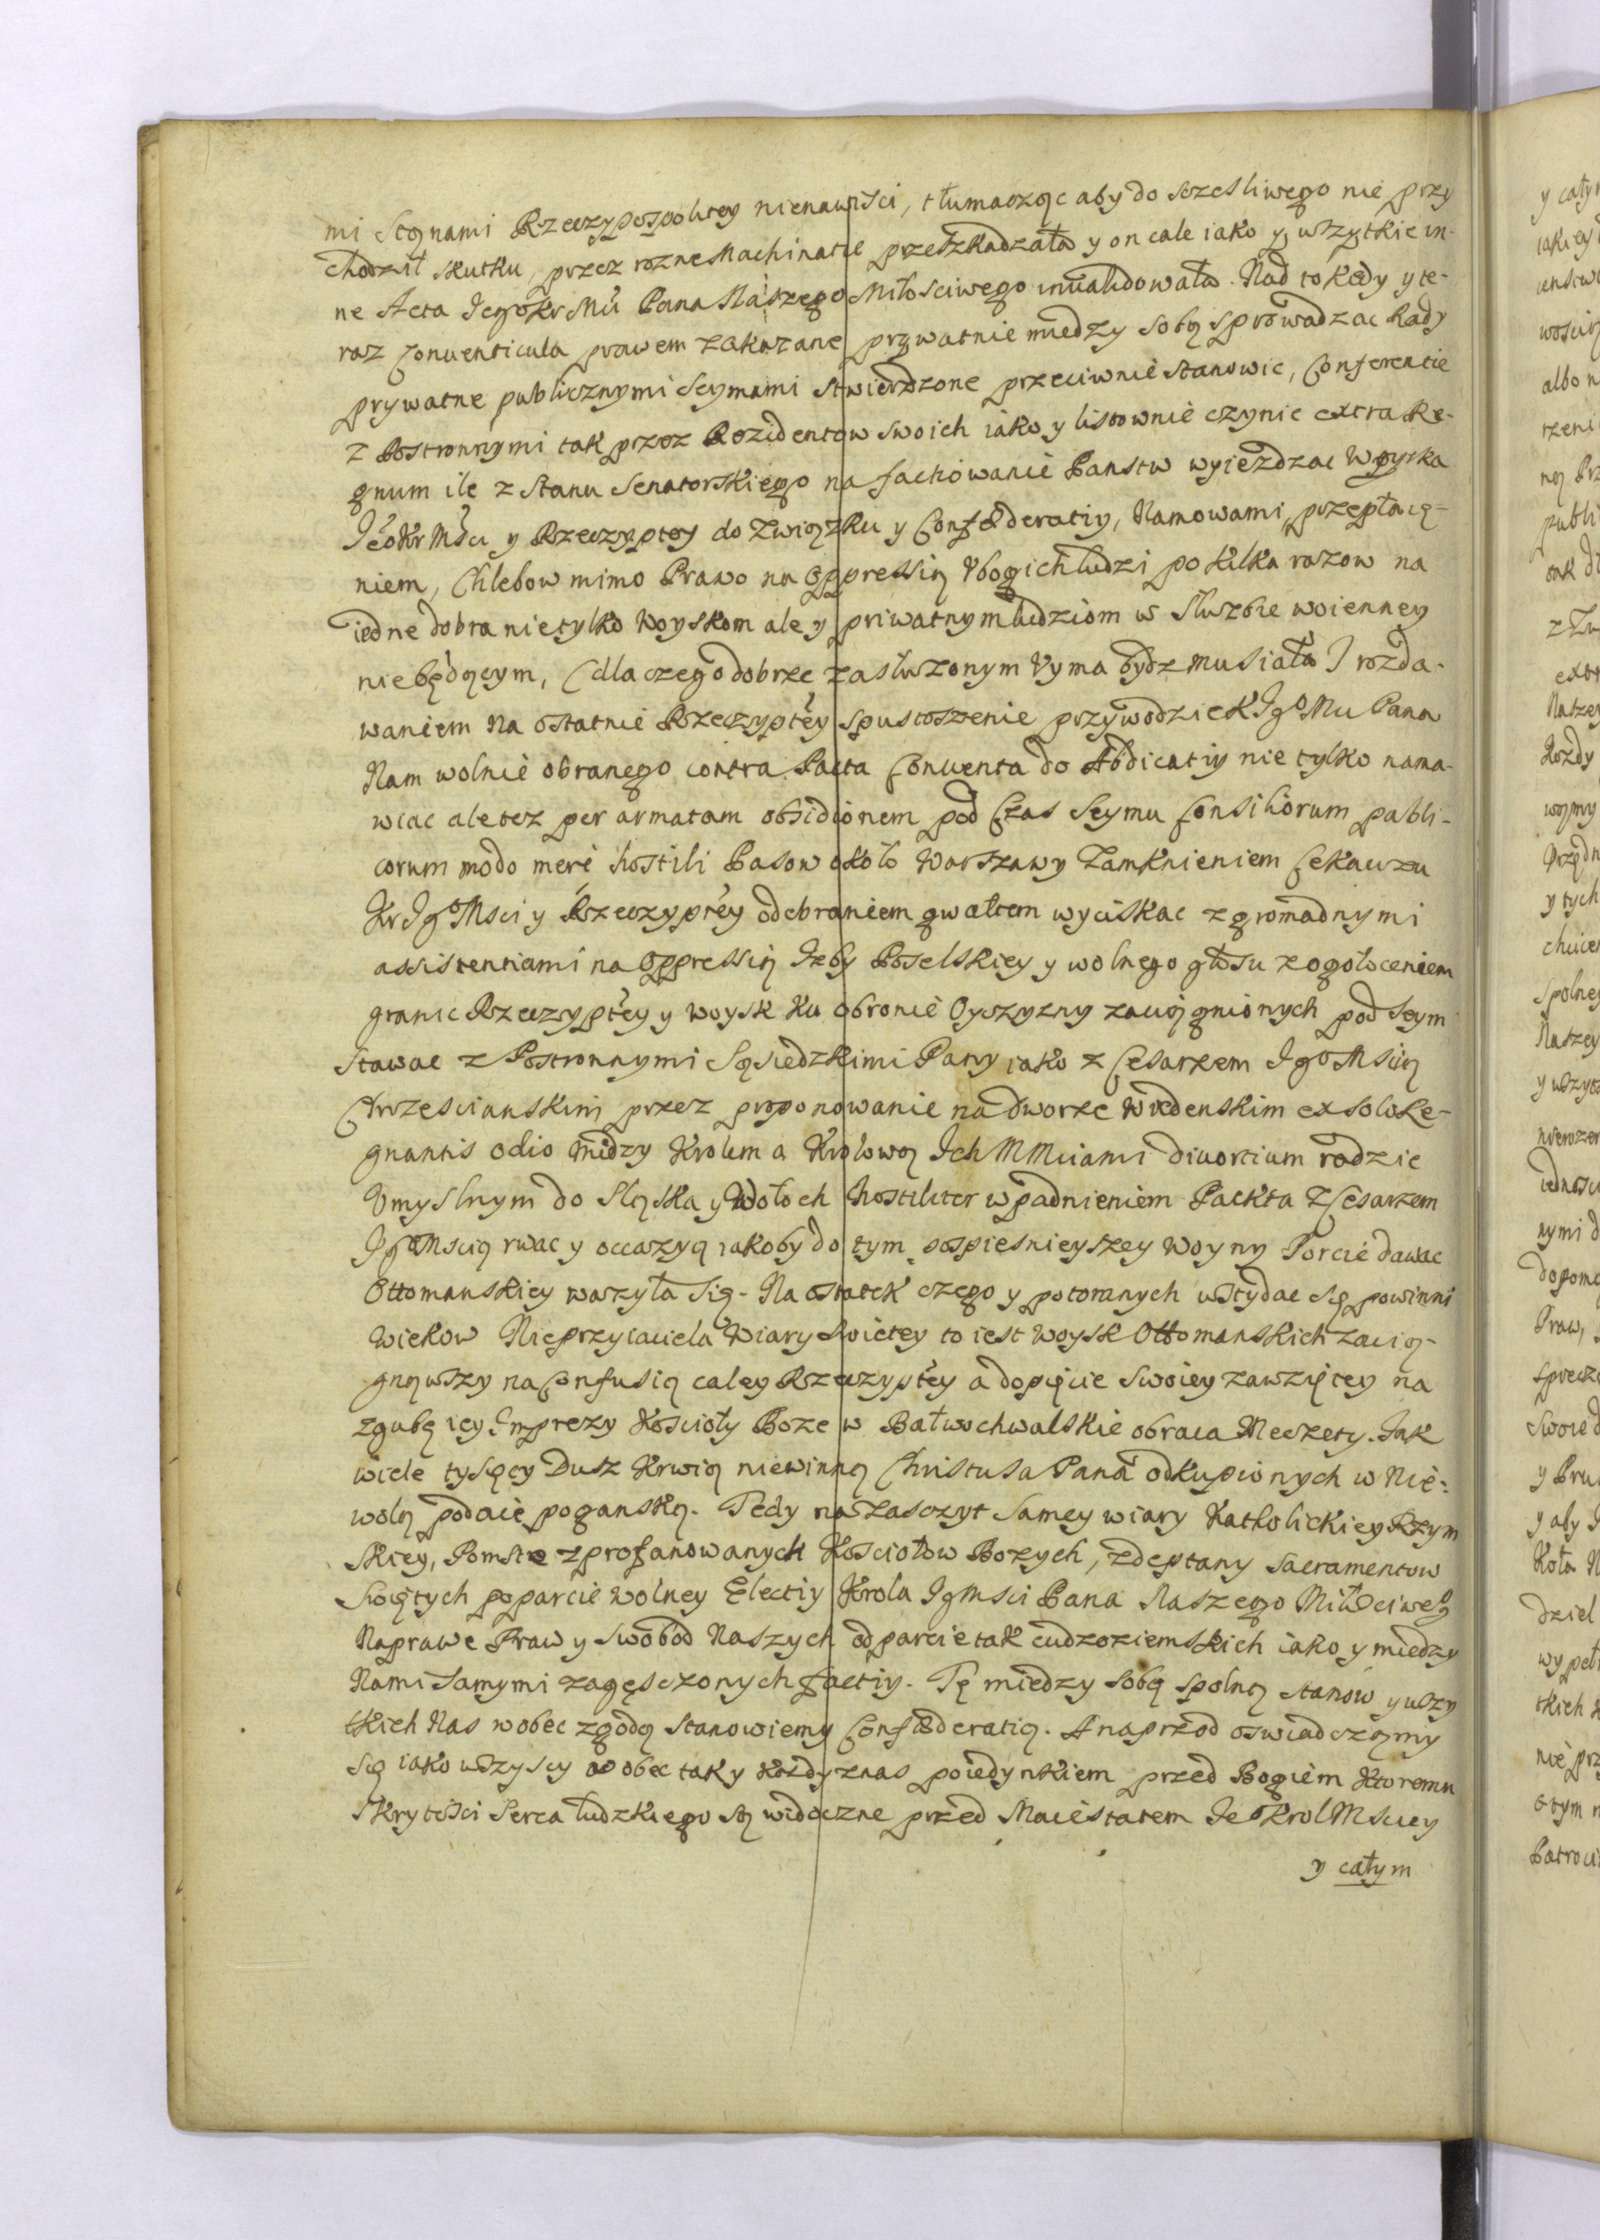 mi Stąnami Rzeczypospolitey nienawiści, tłumacząc aby do sczesliwego nie przy
chodził skutku, przez rozne Machinatie przeszkadzała y on cale iako y wszytkie in-
ne Acta Jego Kr Mći Pana Naszego Miłosciwego invalidowała. Nad to kedy y te-
raz Conventicula prawem zakazane prywatnie miedzy sobą sprowadzac Rady
prywatne publicznymi Seymami stwierdzone przeciwnie stanowic, Conferentie
z Postronnymi tak przez Rezidentow swoich iako y listownie czynic extra Re-
gnum ile z Stanu Senatorskiego na fachowanie Panstw wyiezdzac Woyska
Jeo Kr Mści y Rzeczyptey do Związku y Confœderatiy, Namowami, przepłacą-
niem, Chlebow mimo Prawo na oppressią Vbogich ludzi po kilka razow na
iedne dobra nie tylko Woyskom ale y priwatnym ludziom w Służbie woienney
niebędącym, (dla czego dobrze zasłuzonym Vyma bydz musiała) rozda-
waniem na ostatnie Rzeczyptey spustoszenie przywodzic K JgoMci Pana
Nam wolnie obranego contra Pacta Conventa do Abdicatiy nie tylko nama-
wiac ale tez per armatam obsidionem pod Czas Seymu Consiliorum publi-
corum modo mere hostili Pasow około Warszawy Zamknieniem Cekauzu
Kr Jgo Msci y Rzeczyptey odebraniem gwałtem wyciskac z gromadnymi
assistentiami na oppressią Izby Poselskiey y wolnego głosu z ogołoceniem
granic Rzeczyptey y woysk ku obronie Oyczyzny zaciągnionych pod Seym
stawac z Postronnymi Sąsiedzkimi Pany iako z Cesarzem Jgo Mscią
Chrzescianskim przez proponowanie na dworze Wiedenskim ex solo Re-
gnantis odio miedzy Krolem a Krolową Ich MMciami divortium rodzic
Vmyslnym do Sląska y Wołoch hostiliter wpadnieniem Packta z Cesarzem
Jgo Mscią rwac y occazyą iakoby do tym pospiesnieyszey Woyny Porcie dawac
Ottomanskiey wazyła się. Na ostatek czego y potomnych wstydac się powinni
wiekow Nieprzyiaciela Wiary swietey to iest Woysk Ottomanskich zacią-
gnąwszy na Confusią całey Rzeczyptey a dopięcie swoiey zawziętey na
zgubę iey Imprezy Kościoły Boze w Bałwochwalskie obraca Meczety. Jak
wiele tysięcy Dusz Krwią niewinną Christusa Pana odkupionych w Nie-
wolą podaie poganską. Tedy na Zasczyt Samey wiary Katholickiey Rzym
skiey, Pomste zprofanowanych Kosciołow Bozych, zdeptany Sacramentow
Swiętych poparcie wolney Electiy Krola Jgmsci Pana Naszego Miłościweo
Naprawe Praw y Swobod Naszych odparcie tak cudzoziemskich iako y miedzy
Nami Samymi zagęsczonych factiy. Tę miedzy sobą spolną stanow y wszy
tkich Nas wobec zgodą stanowiemy Confœderatią. A naprzod oswiadczamy
się iako wszyscy wobec tak y kozdy z nas poiedynkiem przed Bogiem Ktoremu
Skrytości Serca ludzkiego są widoczne przed Maiestatem Jeo Krol Mscey
y całym